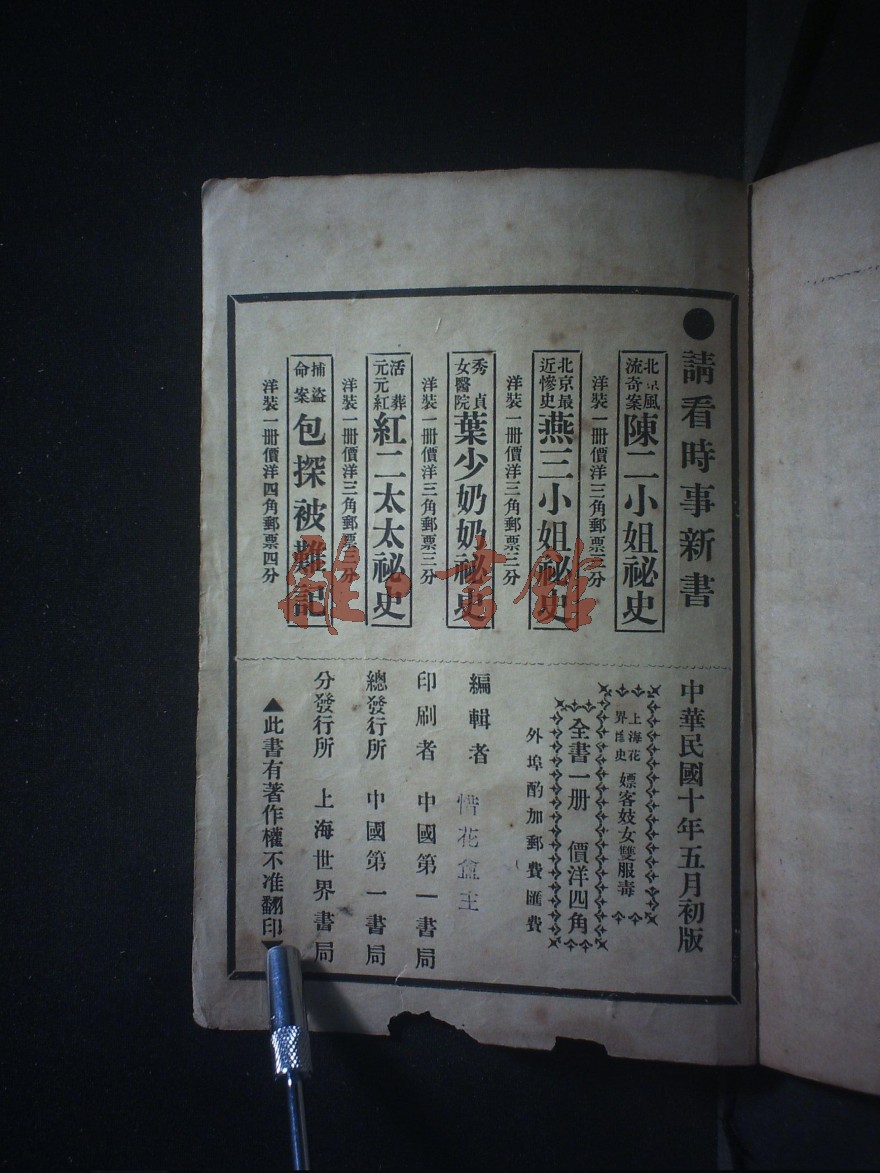 ●請看時事新書
北京風流奇案 陳二小姐祕史
洋裝一冊價洋三角郵票三分
北京最近慘史 燕三小姐祕史
洋裝一冊價洋三角郵票三分
秀貞女醫院 葉少奶奶祕史
洋裝一冊價洋三角郵票三分
活葬元元紅 紅二太太祕史
洋裝一冊價洋三角郵票三分
捕盜命案 包探被難記
洋裝一冊價洋四角郵票四分
中華民國十年五月初版
上海花界史 嫖客妓女雙服毒
全書一册 價洋四角
外埠酌加郵費匯費
編輯者 惜花盦主
印刷者 中國第一書局
總發行所 中國第一書局
分發行所 上海世界書局
▲此書有著作權不准翻印▼
雜·書館